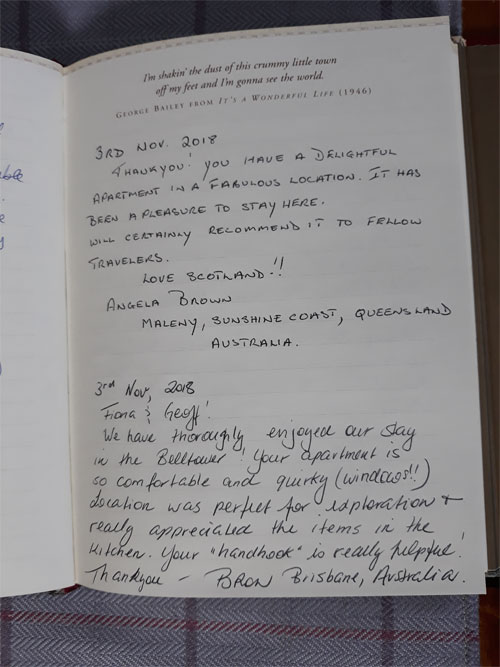 I'm shakin' the dust of this crummy little town
off my feet and I'm gonna see the world.
GEORGE BAILEY FROM IT'S A WONDERFUL LIFE (1946)
3RD NOV. 2018
THANKYOU! YOU HAVE A DELIGHTFUL
APARTMENT IN A FABULOUS LOCATION. IT HAS
BEEN A PLEASURE TO STAY HERE.
WILL CERTAINLY RECOMMEND IT TO FELLOW
TRAVELERS.
LOVE SCOTLAND!!
ANGELA BROWN
MALENY, SUNSHINE COAST, QUEENSLAND
AUSTRALIA.
3rd Nov, 2018
Fiona & Geoff!
We have thoroughly enjoyed our stay
in the Belltower! Your apartment is
so comfortable and quirky (windows!!)
Location was perfect for exploration &
really appreciated the items in the
kitchen. Your "handbook" is really helpful!
Thankyou - BRON Brisbane, Australia.